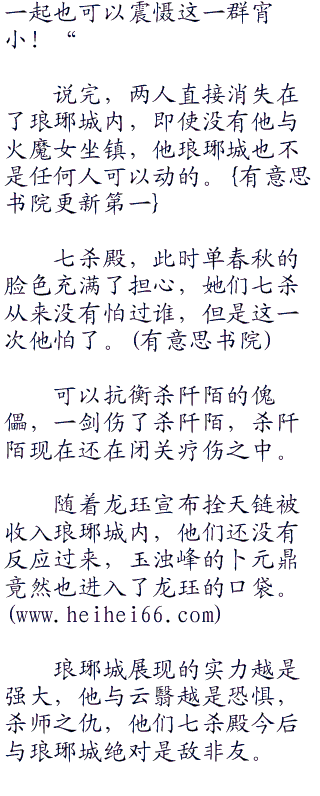 一起也可以震慑这一群宵
小！“
说完，两人直接消失在
了琅琊城内，即使没有他与
火魔女坐镇，他琅琊城也不
是任何人可以动的。{有意思
书院更新第一}
七杀殿，此时单春秋的
脸色充满了担心，她们七杀
从来没有怕过谁，但是这一
次他怕了。(有意思书院)
可以抗衡杀阡陌的傀
儡，一剑伤了杀阡陌，杀阡
陌现在还在闭关疗伤之中。
随着龙珏宣布拴天链被
收入琅琊城内，他们还没有
反应过来，玉浊峰的卜元鼎
竟然也进入了龙珏的口袋。
(www.heihei66.com)
琅琊城展现的实力越是
强大，他与云翳越是恐惧，
杀师之仇，他们七杀殿今后
与琅琊城绝对是敌非友。